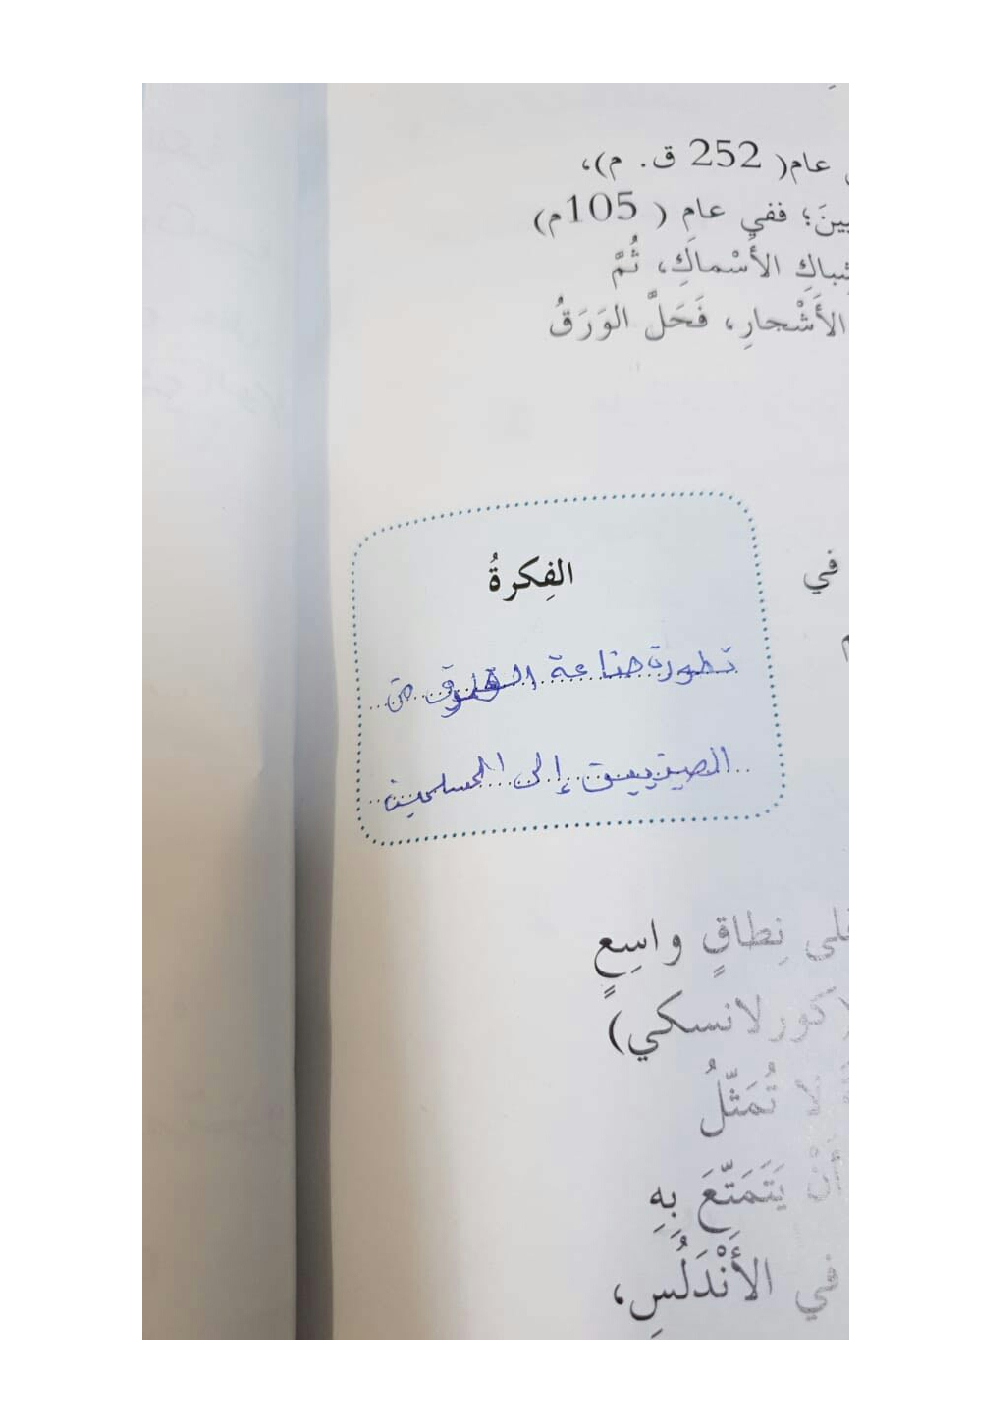 عام( 252 ق. م)،
بينَ؛ ففي عامِ ( 105م)
شِباكِ الأَسْماكِ، ثُمَّ
الأَشْجارِ، فَحَلَّ الوَرَقُ
في
الفِكرةُ
تطورة صناعة الورق من
الصينيين إلى المسلمين
على نِطاقٍ واسِعٍ
(كورلانسكي)
تُمَثِّلُ
أَنْ يَتَمَتَّعَ بِهِ
في الأَنْدَلُسِ،